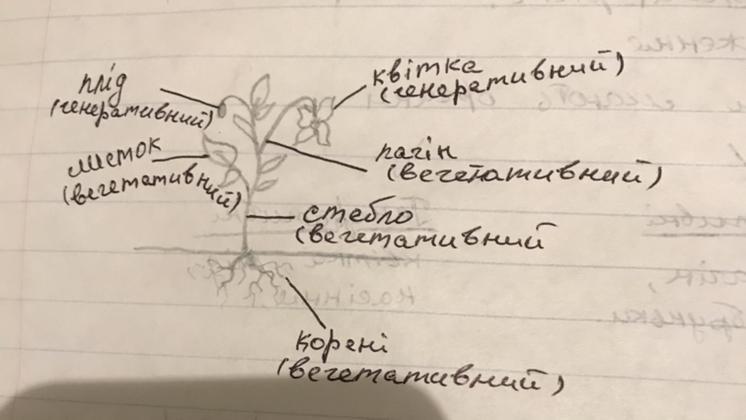 плід
(генеративний)
квітка
(генеративний)
листок
(вегетативний)
пагін
(вегетативний)
стебло
(вегетативний
корені
(вегетативний)